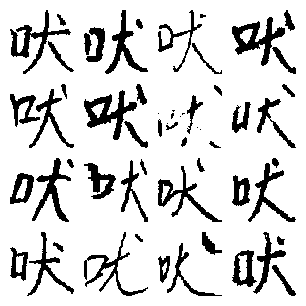 吠吠吠吠
吠吠吠吠
吠吠吠吠
吠吠吠吠